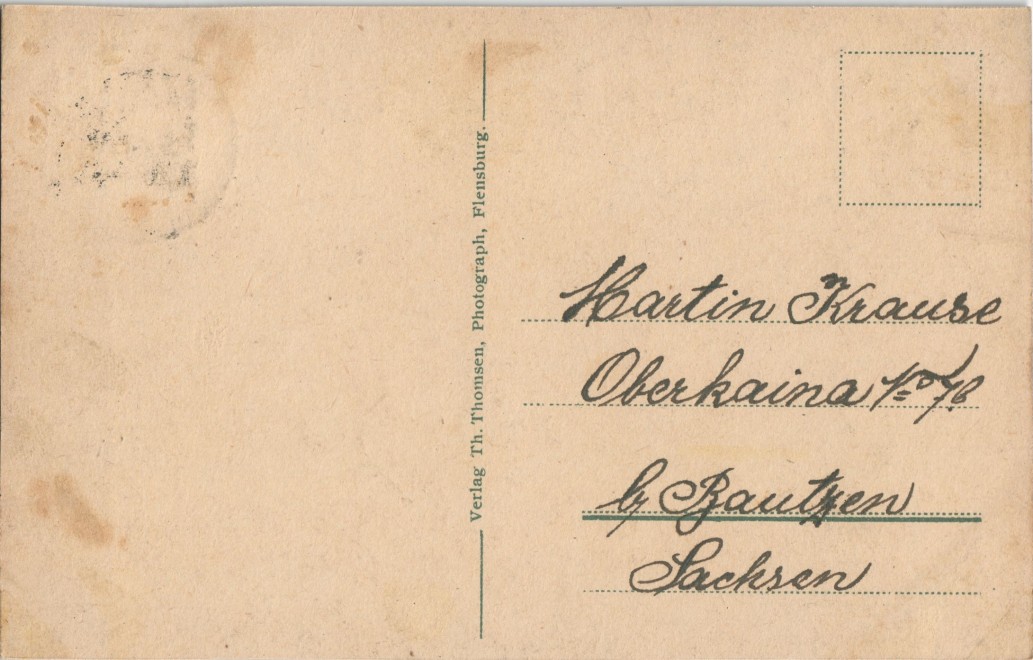 Verlag Th. Thomsen, Photograph, Flensburg.
Martin Krause
Oberkaina
b/ Bautzen
Sachsen